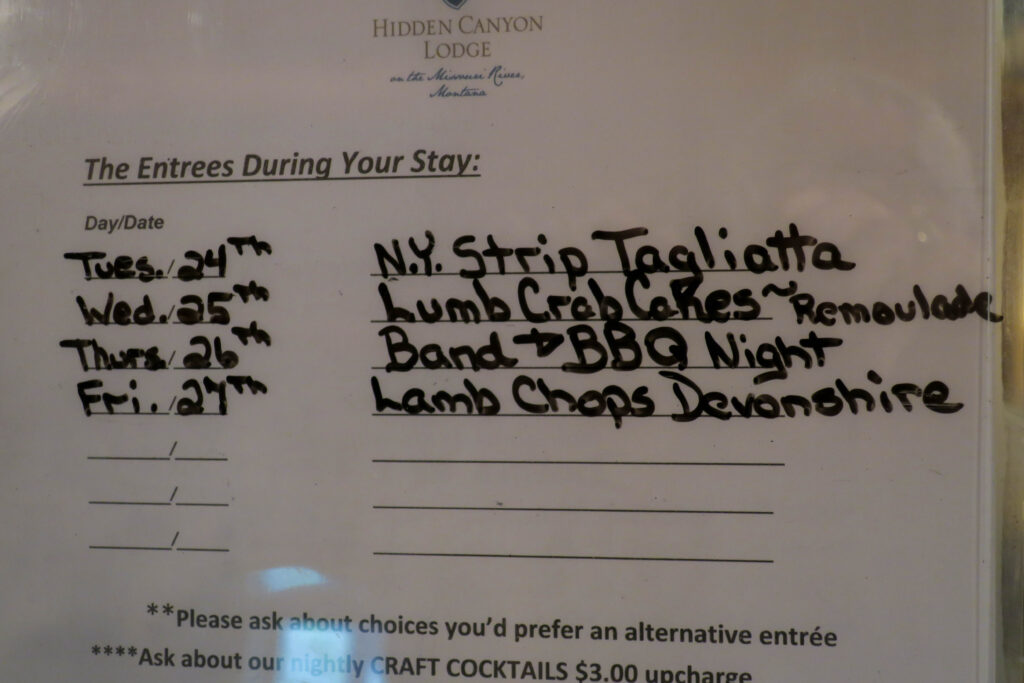 HIDDEN CANYON
LODGE
on the Missouri River,
Montana
The Entrees During Your Stay:
Day/Date
Tues./24Th N.Y. Strip Tagliatta
Wed./25Th Lumb Crab Cakes ~ Remoulade
Thurs/26Th Band → BBQ Night
Fri./27Th Lamb Chops Devonshire
**Please ask about choices you'd prefer an alternative entrée
****Ask about our nightly CRAFT COCKTAILS $3.00 upcharge